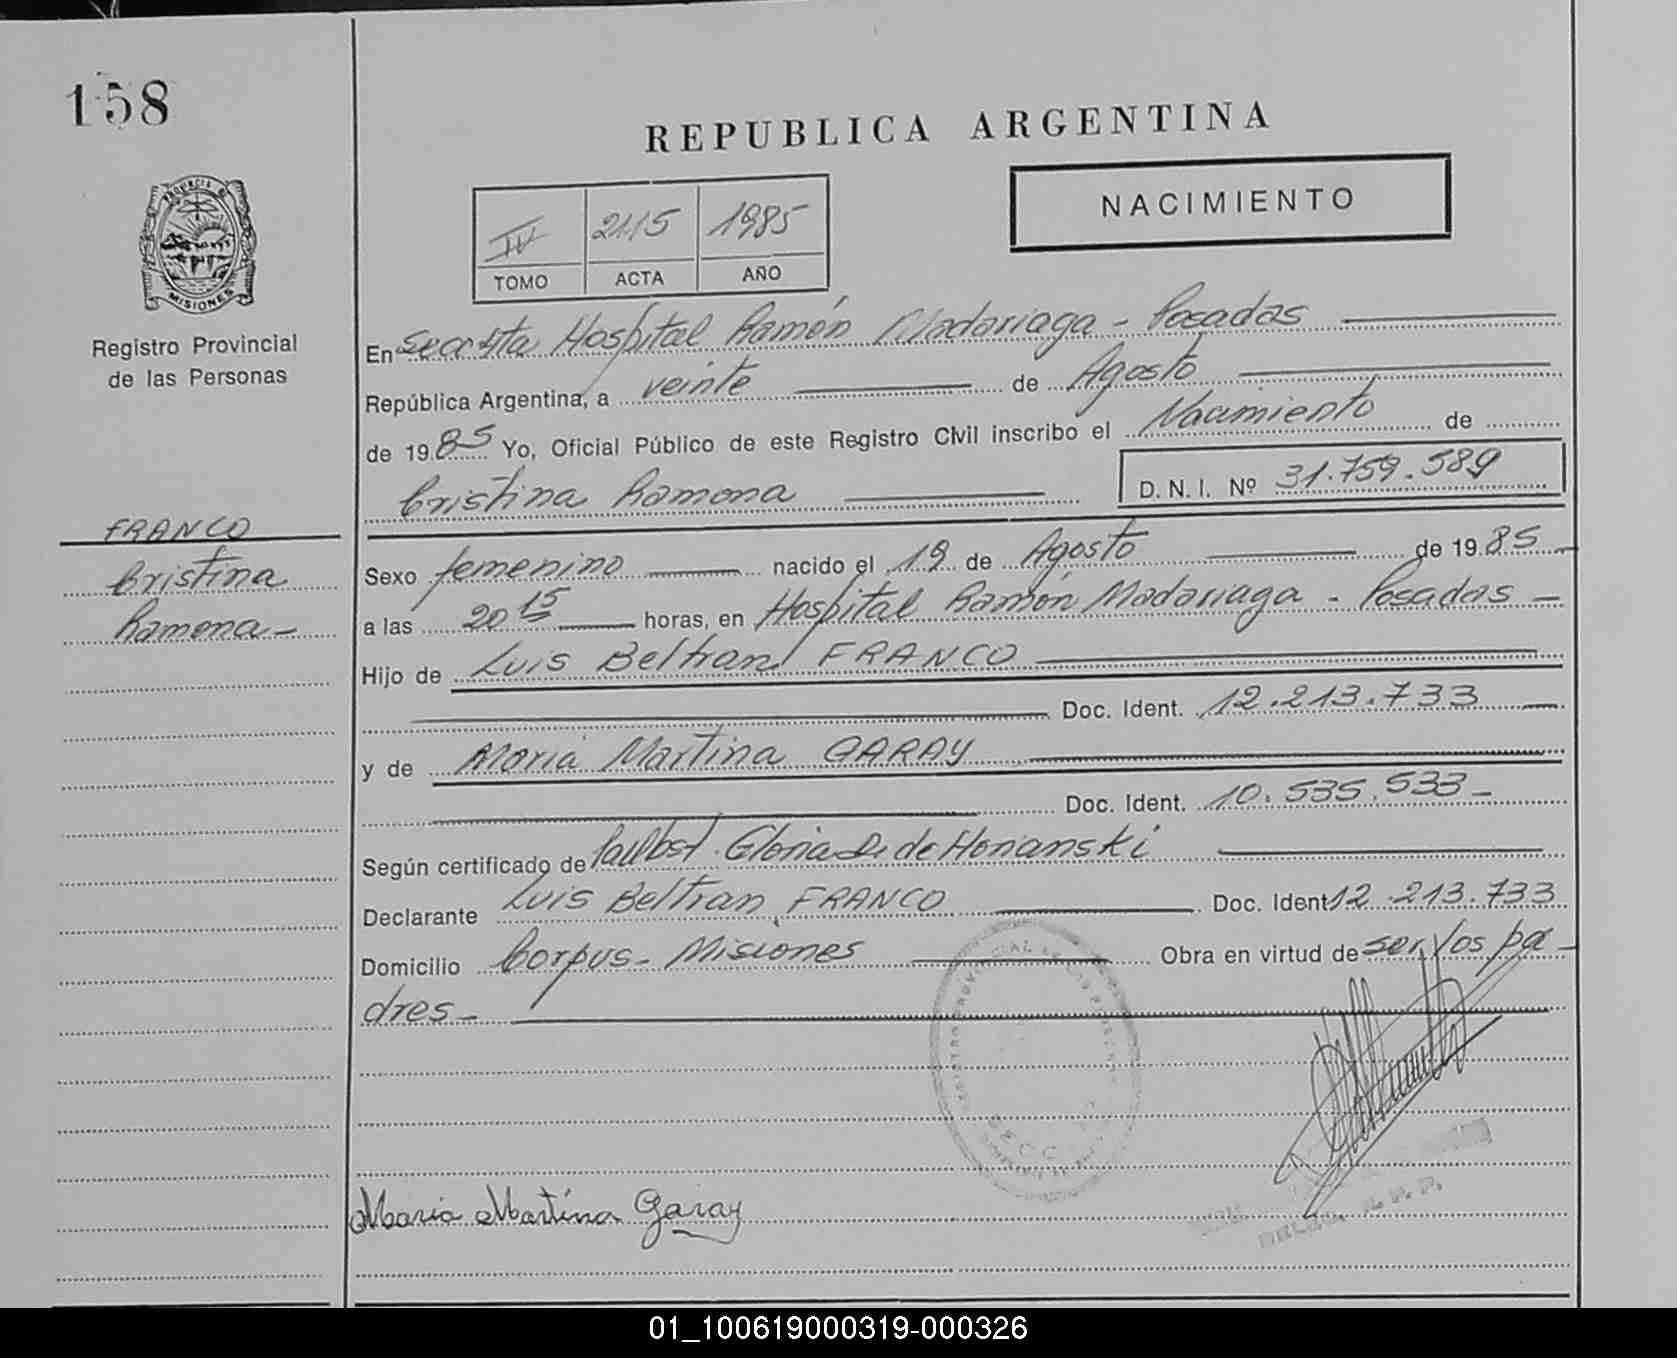 158
REPUBLICA ARGENTINA
NACIMIENTO
IV 2115 1985
TOMO ACTA AÑO
PROVINCIA DE
MISIONES
Registro Provincial
de las Personas
En Hospital Ramón Madariaga - Posadas
República Argentina, a veinte de Agosto
de 1985 Yo, Oficial Público de este Registro Civil inscribo el Nacimiento de
Cristina Ramona D.N.I. Nº 31.759.589
FRANCO
Cristina
Ramona -
Sexo femenino nacido el 19 de Agosto de 1985
a las 20 15 horas, en Hospital Ramón Madariaga - Posadas -
Hijo de Luis Beltran FRANCO
Doc. Ident. 12.213.733
y de Maria Martina GARAY
Doc. Ident. 10.535.533 -
Según certificado de Gloria de Honanski
Declarante Luis Beltran FRANCO Doc. Ident 12.213.733
Domicilio Corpus - Misiones Obra en virtud de ser los pa-
dres -
Maria Martina Garay
01_100619000319-000326